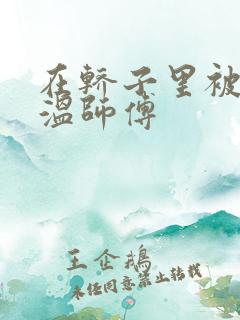 在轿子里被
温師傅
王企鵝
未经同意禁止转载